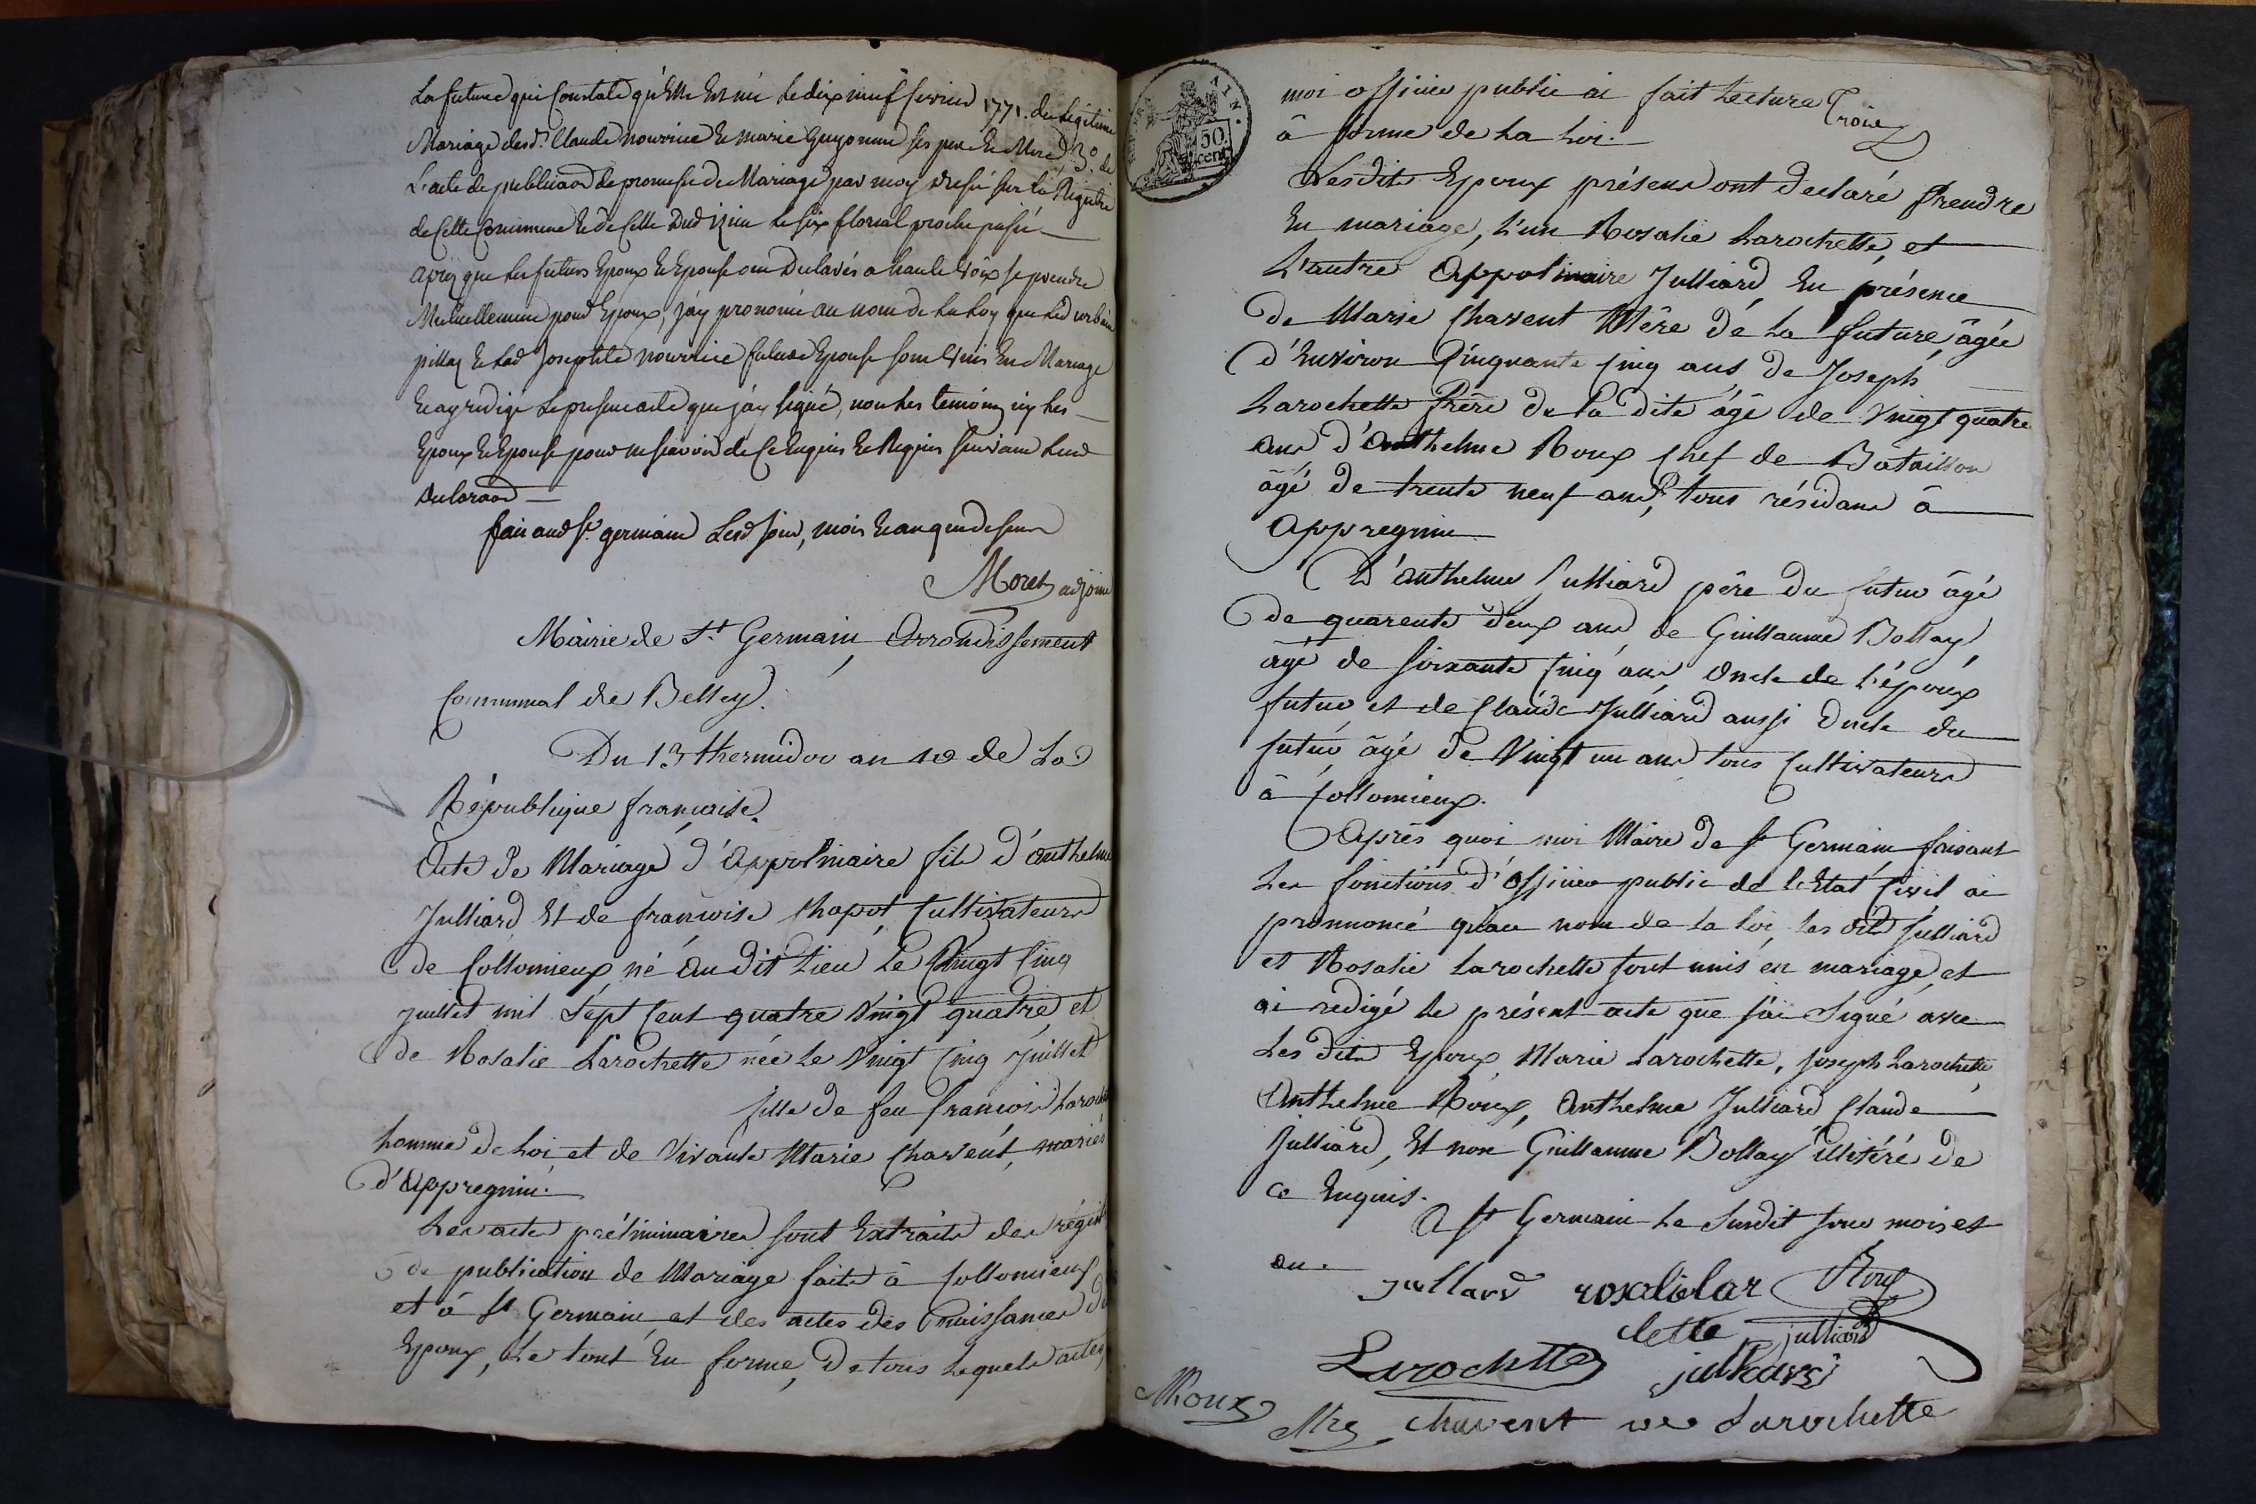 La future qui Constate qu'Elle Est née Le dix neuf fevrier 1771. du Légitime
Mariage desd. Claude nourrice Et marie Guyonnet ses pere Et Mere 3.° de
L'acte de publicaon de promesse de Mariage par moy dressé sur le Régistre
de Cette Commune Et de Celle Dud izieu Le six floreal proche passé
après que Les futurs Epoux Et Epouse ont Déclarés a haute voix se prendre
Mutuellement pour Epoux, j'ay prononcé au nom de La Loy que Led urbain
pillaz Et Lad josephte nourrice future Epouse sont Unis En Mariage
Et ay redigé Le present acte que j'ay signé, non Les temoins ny Les
Epoux Et Epouse pour ne sçavoir de Ce Enquis Et Requis suivant Leur
declaraon
fait aud St. germain Lesd jour, mois Et an que dessus
Moret adjoint
Mairie de St. Germain, Arrondissement
Communal de Belley.
Du 13 thermidor an 10 de La
République française.
Acte de Mariage d'Appolinaire fils d'Anthelme
Julliard Et de françoise Chapot, Cultivateurs
de Collomieux né Au dit Lieu Le Vingt Cinq
juillet mil Sept Cent quatre Vingt quatre et
de Rosalie Larochette née Le Vingt Cinq Juillet
fille de feu françois Laroche
homme de Loi et de Vivante Marie Charvent, mariés
d'Appregnin.
Les actes préliminaires sont Extraits des régist
de publication de Mariage faite à Collomieux
et à St Germain, et des actes des Naissances d
Epoux, Le tout En forme, De tous Lequels actes
AIN.
50
cent
moi officier public ai fait Lecture Troie
à forme de La Loi.
Lesdits Epoux présens ont declaré prendre
En mariage, L'un Rosalie Larochette, et
L'autre Appolinaire Julliard En présence
de Marie Charvent Mère de La future, âgée
d'Environ Cinquante Cinq ans de Joseph
Larochette Frère de la dite âgé de Vingt quatre
ans d'Anthelme Roux Chef de Bataillon
âgé de trente neuf ans, tous résidans à
Appregnin
D'Anthelme Julliard père du futur âgé
de quarente deux ans, de Guillaume Bollay,
âgé de soixante Cinq ans Oncle de L'époux
futur et de Claude Julliard aussi Oncle du
futur, âgé de Vingt un ans tous Cultivateurs
à Collomieux.
Après quoi moi Maire de St Germain faisant
Les fonctions d'Officier public de l'Etat Civil ai
prononncé qu'au nom de la loi, les dits Julliard
et Rosalie Larochette sont unis en mariage, et
ai redigé le présent acte que j'ai Signé avec
Les dits Epoux, Marie Larochette, Joseph Larochette,
Anthelme Roux, Anthelme Julliard Claude
Julliard, Et non Guillaume Bollay illitéré de
ce Enquis.
A St Germain Le Susdit jour mois et
an.
Jullard rosalielar Roux
clette julliard
Larochette julliard
Roux
Mre Charvent ve Larochette